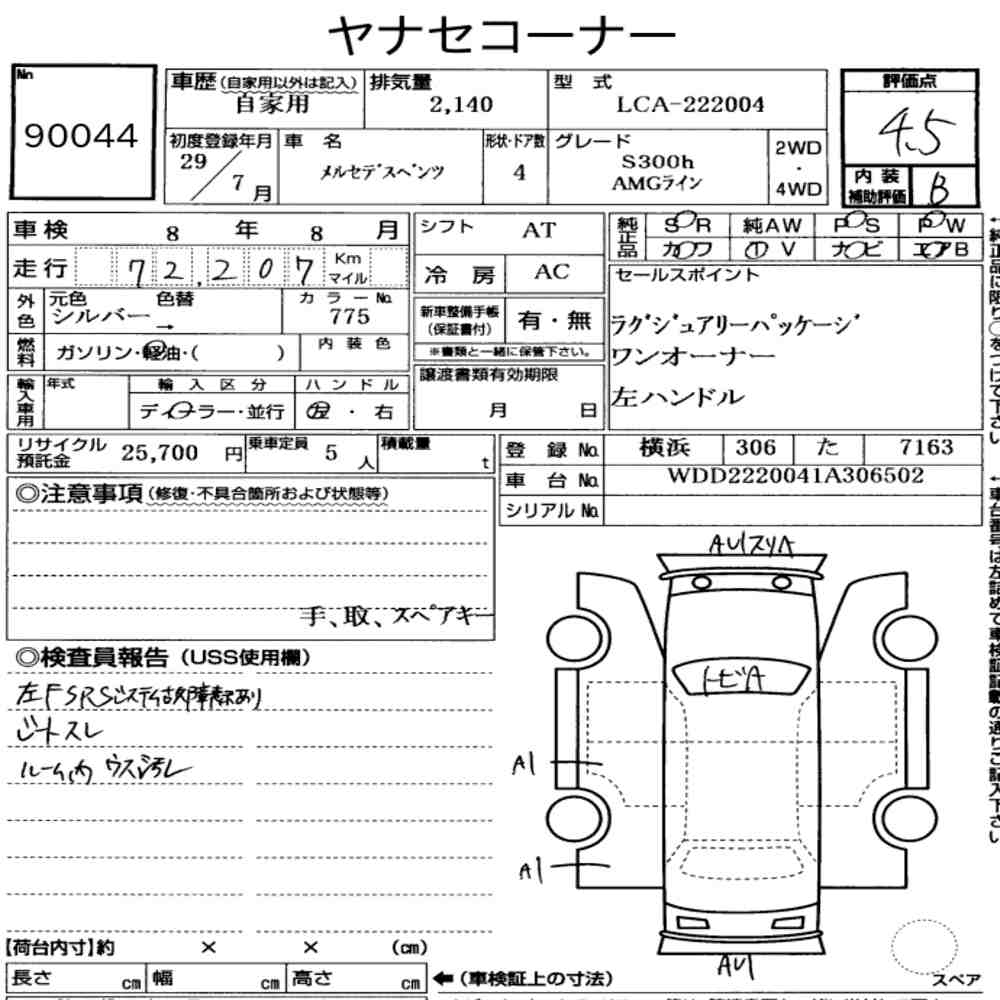 ヤナセコーナー
No
90044
車歴(自家用以外は記入)
自家用
排気量
2,140
型式
LCA-222004
評価点
4.5
初度登録年月
29/7月
車名
メルセデスベンツ
形状・ドア数
4
グレード
S300h
AMGライン
2WD
・
4WD
内装
補助評価
B
車検 8 年 8 月
走行 72,207 Km マイル
シフト AT
冷房 AC
純正品 SR 純AW PS PW
カワ TV ナビ エアB
外色
元色 色替
シルバー→
カラーNo.
775
新車整備手帳
(保証書付)
有・無
※書類と一緒に保管下さい。
燃料
ガソリン・軽油・( )
内装色
セールスポイント
ラグジュアリーパッケージ
ワンオーナー
左ハンドル
輸入車用
年式
輸入区分
ディーラー・並行
ハンドル
左・右
譲渡書類有効期限
月 日
リサイクル
預託金
25,700 円
乗車定員 5 人
積載量 t
登録No. 横浜 306 た 7163
車台No. WDD2220041A306502
シリアルNo.
◎注意事項(修復・不具合箇所および状態等)
手、取、スペアキー
◎検査員報告(USS使用欄)
左F SRSシステム故障表示あり
シートスレ
ルーム内 ウス汚レ
AU1スリA
トビA
A1
A1
AU1
スペア
【荷台内寸】約 × × (cm)
長さ cm 幅 cm 高さ cm
←(車検証上の寸法)
↑純正品に限り〇をつけて下さい
↑車台番号は左詰めで車検証記載の通りご記入下さい